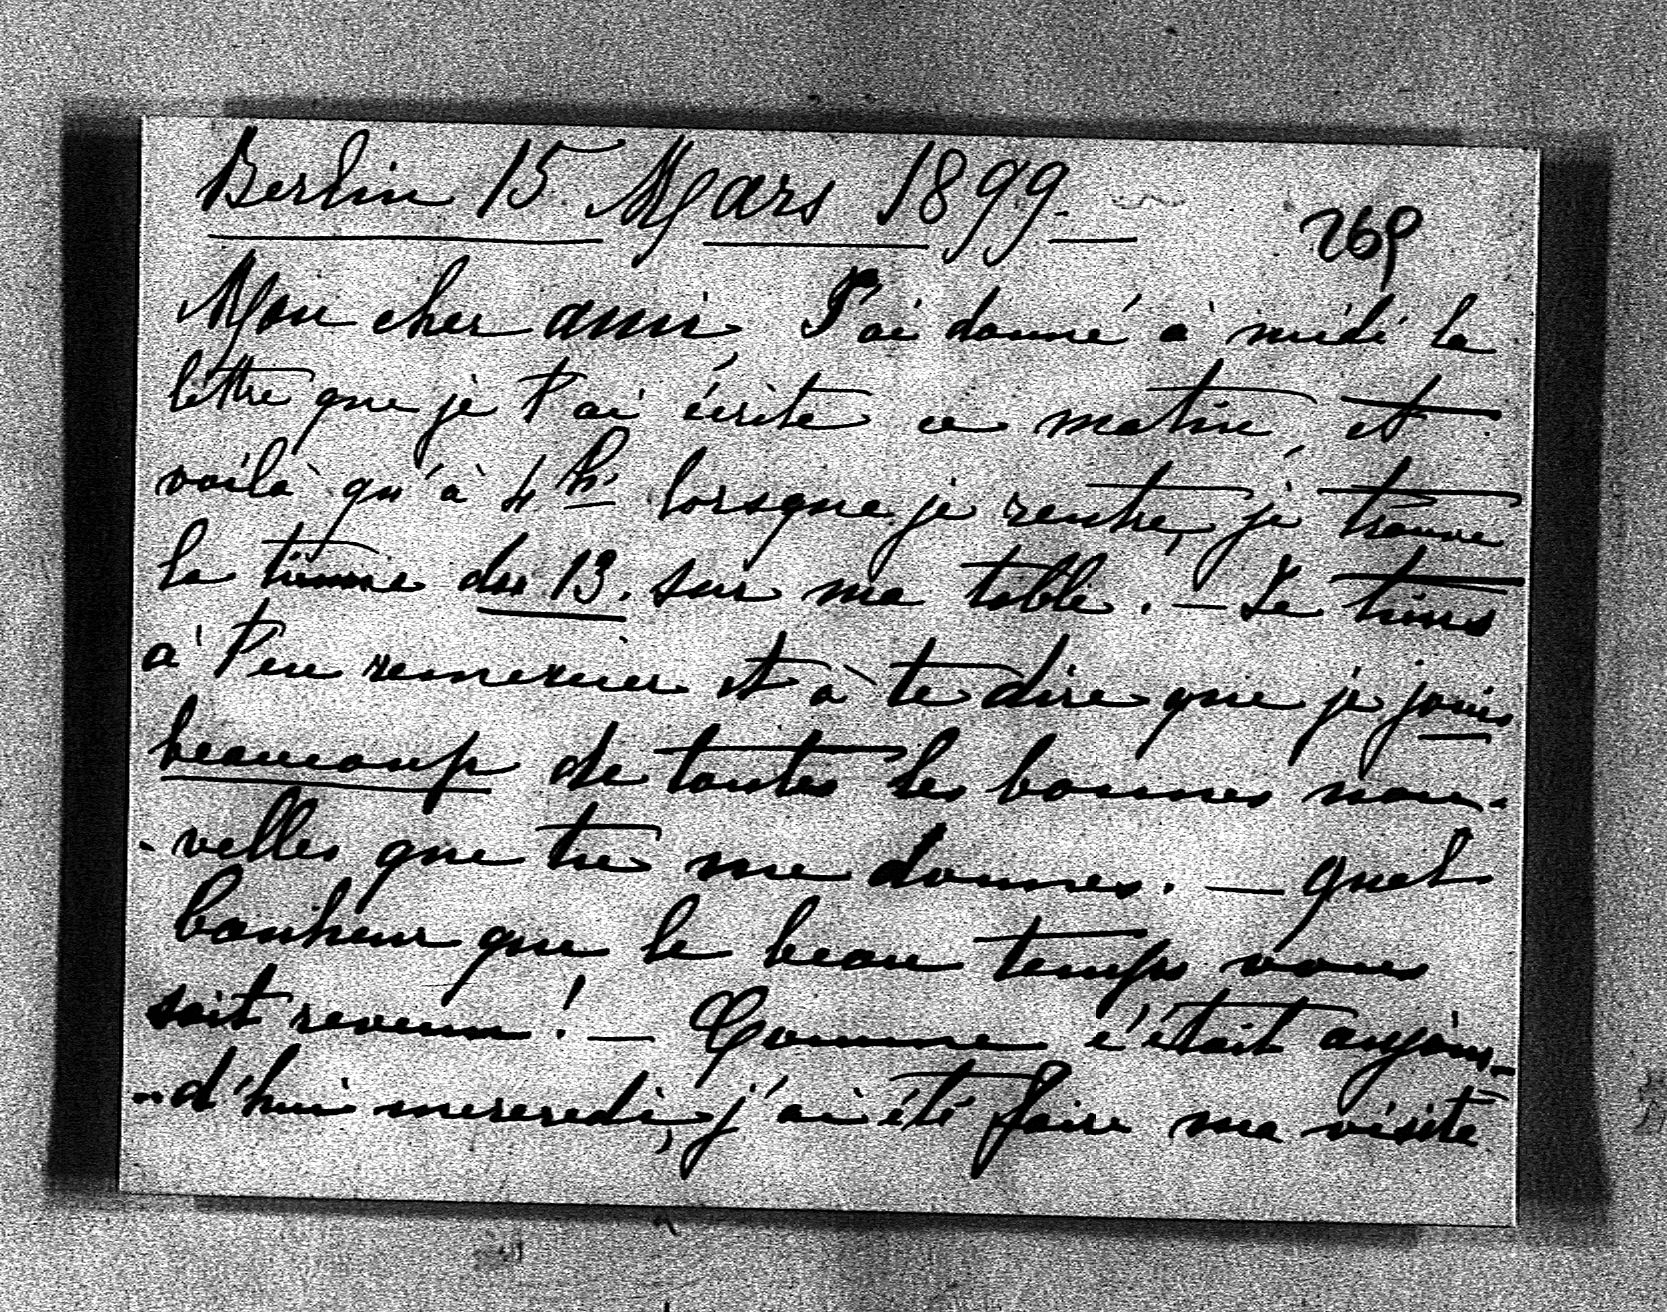 Berlin 15 Mars 1899.
269
Mon cher ami, J'ai donné à midi la
lettre que je t'ai écrite ce matin, et
voilà qu'à 4 h. lorsque je rentre, je trouve
la tienne du 13. sur ma table. — Je tiens
à t'en remercier et à te dire que je jouis
beaucoup de toutes les bonnes nou-
-velles que tu me donnes. — Quel
bonheur que le beau temps vous
soit revenu! — Comme c'était aujour-
-d'hui mercredi, j'ai été faire ma visite